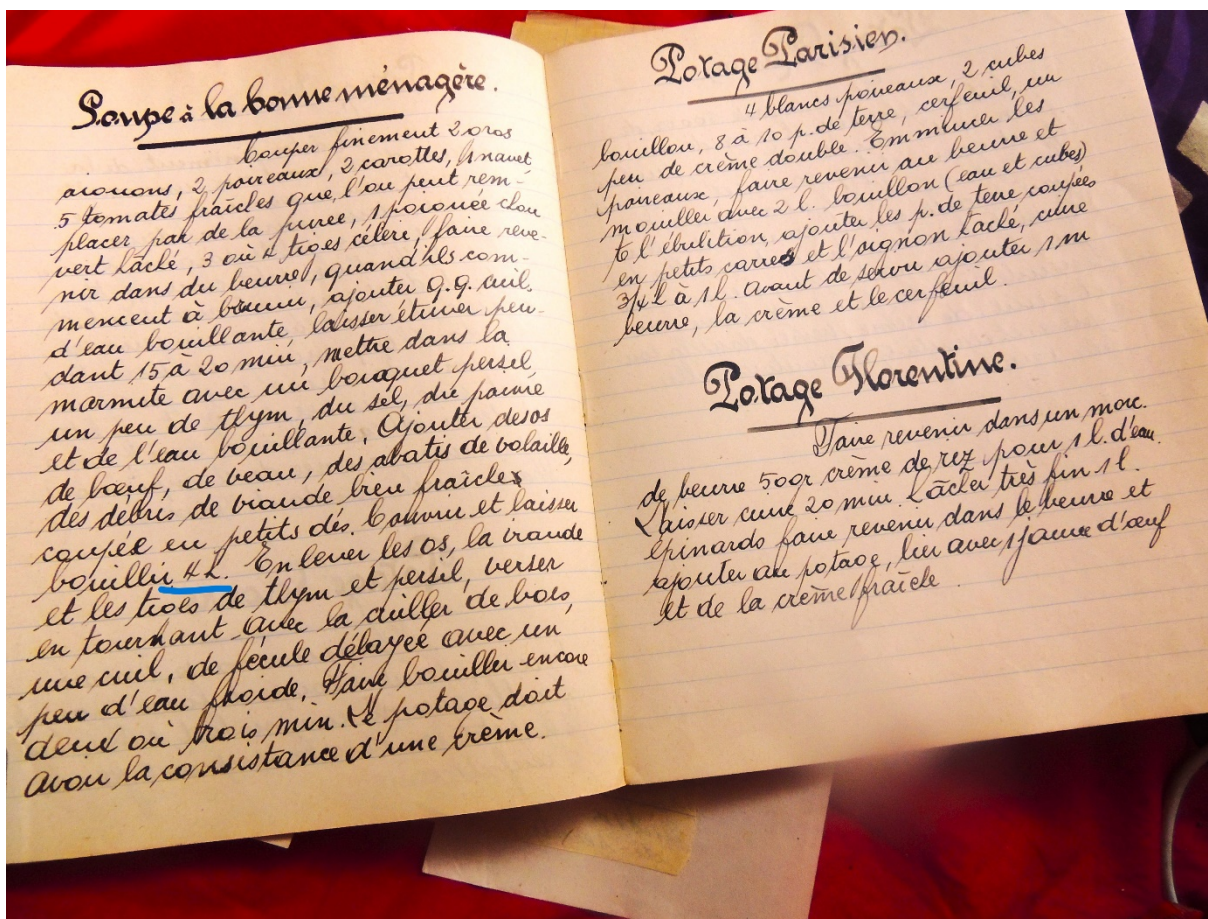 Soupe à la bonne ménagère.
Couper finement 2 gros
oignons, 2 poireaux, 2 carottes, 1 navet
5 tomates fraîches que l'on peut rem-
placer par de la purée, 1 poignée chou
vert hâché, 3 ou 4 tiges céleri, faire reve-
nir dans du beurre, quand ils com-
mencent à brunir, ajouter q.q. cuil.
d'eau bouillante, laisser étuver pen-
dant 15 à 20 min, mettre dans la
marmite avec un bouquet persil,
un peu de thym, du sel, du poivre
et de l'eau bouillante. Ajouter des os
de bœuf, de veau, des abatis de volaille,
des débris de viande bien fraîche
coupée en petits dés. Couvrir et laisser
bouillir 4 h. Enlever les os, la viande
et les tiges de thym et persil, verser
en tournant avec la cuiller de bois,
une cuil. de fécule délayée avec un
peu d'eau froide. Faire bouillir encore
deux ou trois min. Le potage doit
avoir la consistance d'une crème.
Potage Parisien.
4 blancs poireaux, 2 cubes
bouillon, 8 à 10 p. de terre, cerfeuil, un
peu de crème double. Emmincer les
poireaux, faire revenir au beurre et
mouiller avec 2 l. bouillon (eau et cubes)
à l'ébulition, ajouter les p. de terre coupées
en petits carrés et l'oignon haché, cuire
3/4 h à 1 h. Avant de servir ajouter 1 m
beurre, la crème et le cerfeuil.
Potage Florentine.
Faire revenir dans un morc.
de beurre 50gr crème de riz pour 1 l. d'eau.
Laisser cuire 20 min. Hâcher très fin 1 l.
épinards faire revenir dans le beurre et
ajouter au potage, lier avec 1 jaune d'œuf
et de la crème fraîche.